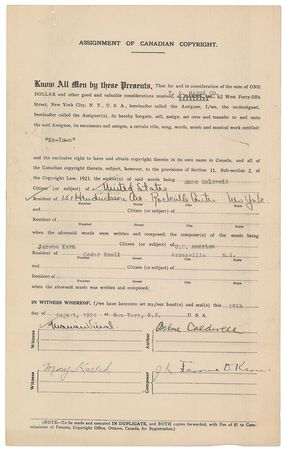 ASSIGNMENT OF CANADIAN COPYRIGHT.
Know All Men by these Presents, That for and in consideration of the sum of ONE
DOLLAR and other good and valuable considerations received, T. B. HARMS CO., 62 West Forty-fifth
Street, New York City, N. Y., U. S. A., hereinafter called the Assignee, I/we, the undersigned,
hereinafter called the Assignor(s), do hereby bargain, sell, assign, set over and transfer to and unto
the said Assignee, its successors and assigns, a certain title, song, words, music and musical work entitled:
and the exclusive right to have and obtain copyright therein in its own name in Canada, and all of
the Canadian copyright therein, subject, however, to the provisions of Section 11, Sub-section 2, of
the Copyright Law, 1921, the author(s) of said words being Anne Caldwell
Citizen (or subject) of United States
Resident of 151 Hendrickson Ave Rockville Centre New York
Number Street City State
Resident of
Number Street City State
when the aforesaid words were written and composed; the composer(s) of the music being
Jerome Kern Citizen (or subject) of U.S. America
Resident of Cedar Knoll Bronxville N.Y.
Number Street City State
Resident of
Number Street City State
when the aforesaid music was written and composed.
IN WITNESS WHEREOF, I/we have hereunto set my/our hand(s) and seal(s) this 16th
day of August, at New York, N.Y. U. S. A.
Witness
Author
Anne Caldwell
Witness
Composer
Jerome D. Kern
(NOTE—To be made and executed IN DUPLICATE, and BOTH copies forwarded, with Fee of $1 to Commissioner of Patents, Copyright Office, Ottawa, Canada, for Registration.)